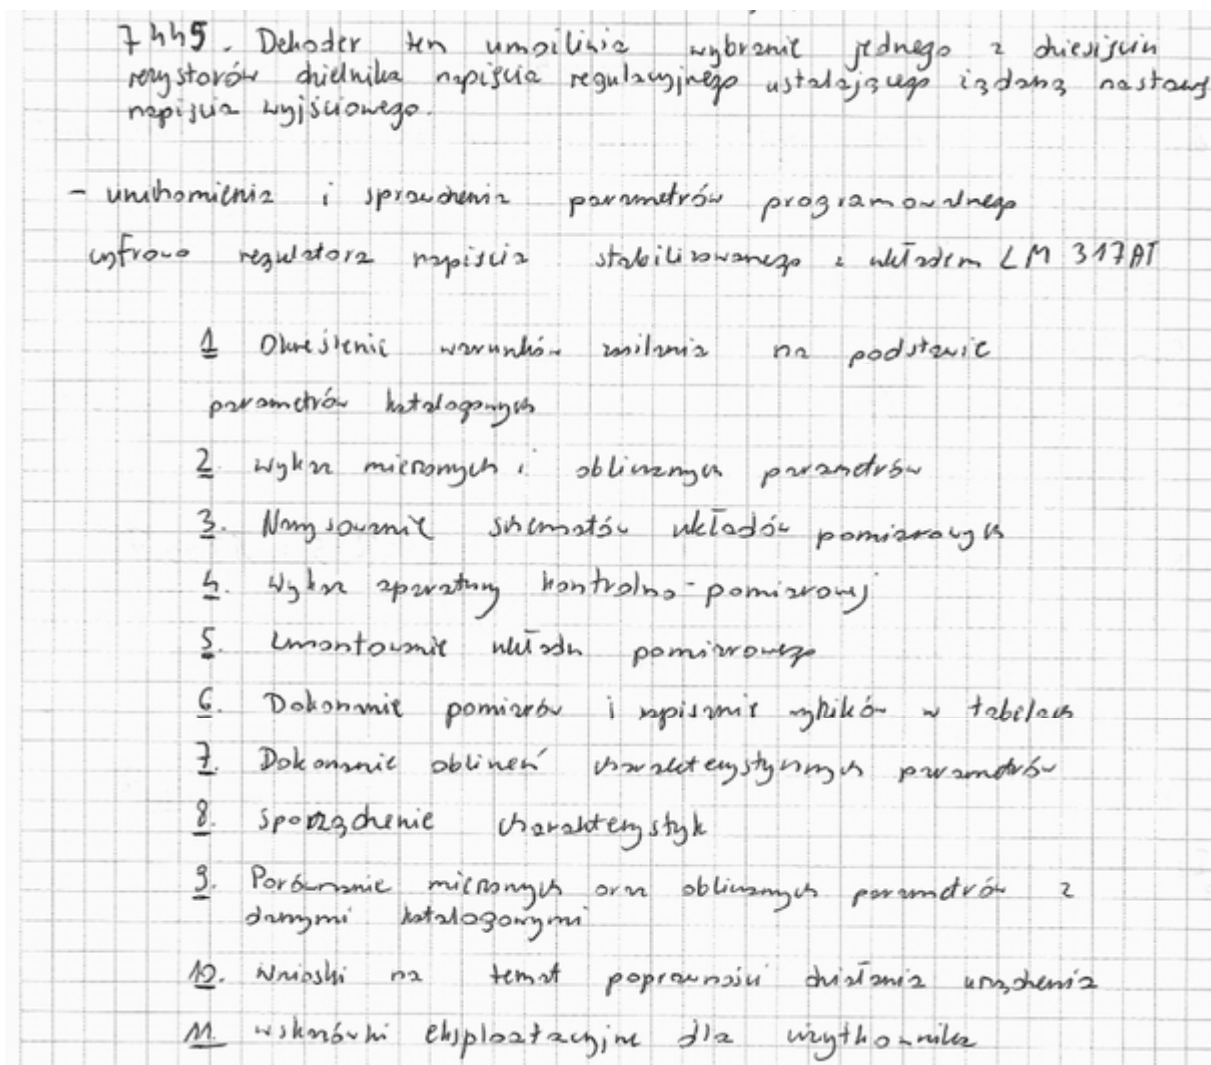 7445. Dekoder ten umożliwia wybranie jednego z dziesięciu
rezystorów dzielnika napięcia regulacyjnego ustalającego żądaną nastawę
napięcia wyjściowego.
- uruchomienia i sprawdzenia parametrów programowalnego
cyfrowo regulatora napięcia stabilizowanego z układem LM 317AT
1 Określenie warunków zasilania na podstawie
parametrów katalogowych
2 wykaz mierzonych i obliczanych parametrów
3. Narysowanie schematów układów pomiarowych
4. wykaz aparatury kontrolno-pomiarowej
5. Zmontowanie układu pomiarowego
6. Dokonanie pomiarów i zapisanie wyników w tabelach
7. Dokonanie obliczeń charakterystycznych parametrów
8. sporządzenie charakterystyk
9. Porównanie mierzonych oraz obliczanych parametrów z
danymi katalogowymi
10. Wnioski na temat poprawności działania urządzenia
11. wskazówki eksploatacyjne dla użytkownika